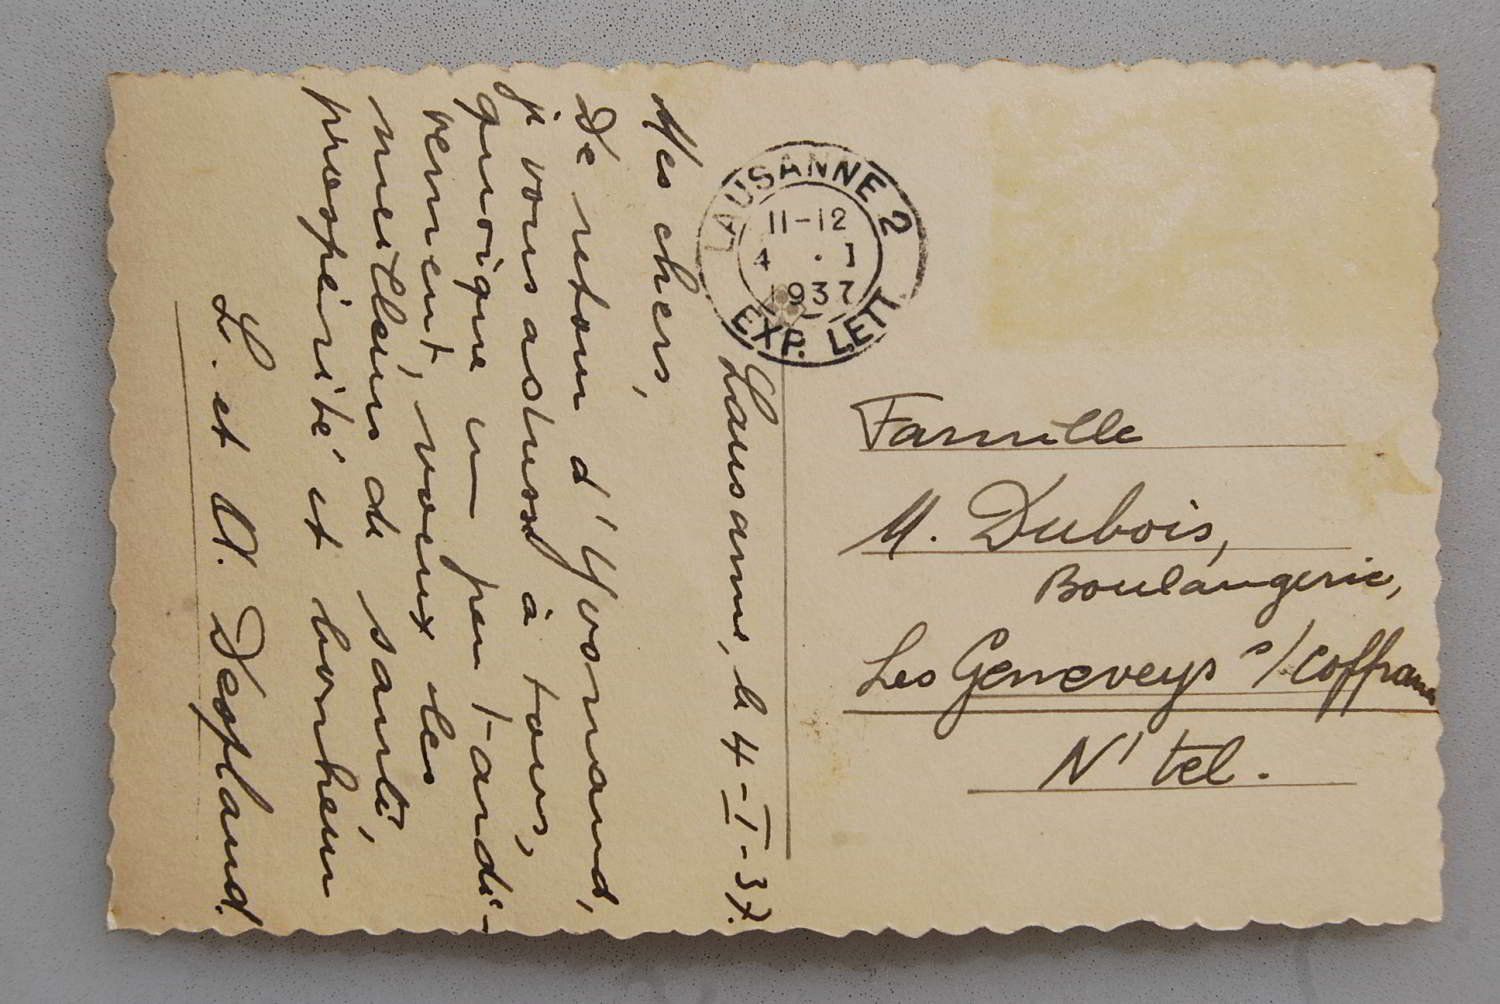 LAUSANNE 2
11-12
4 . 1
1937
EXP. LETT.
Lausanne, le 4-I-37.
Mes chers,
De retour d'Yvonand,
je vous adresse à tous,
quoique un peu tardi-
vement, voeux les
meilleurs de santé,
prospérité et bonheur
L. et A.
Famille
M. Dubois,
Boulangerie,
Les Geneveys s/Coffrane
N'tel.